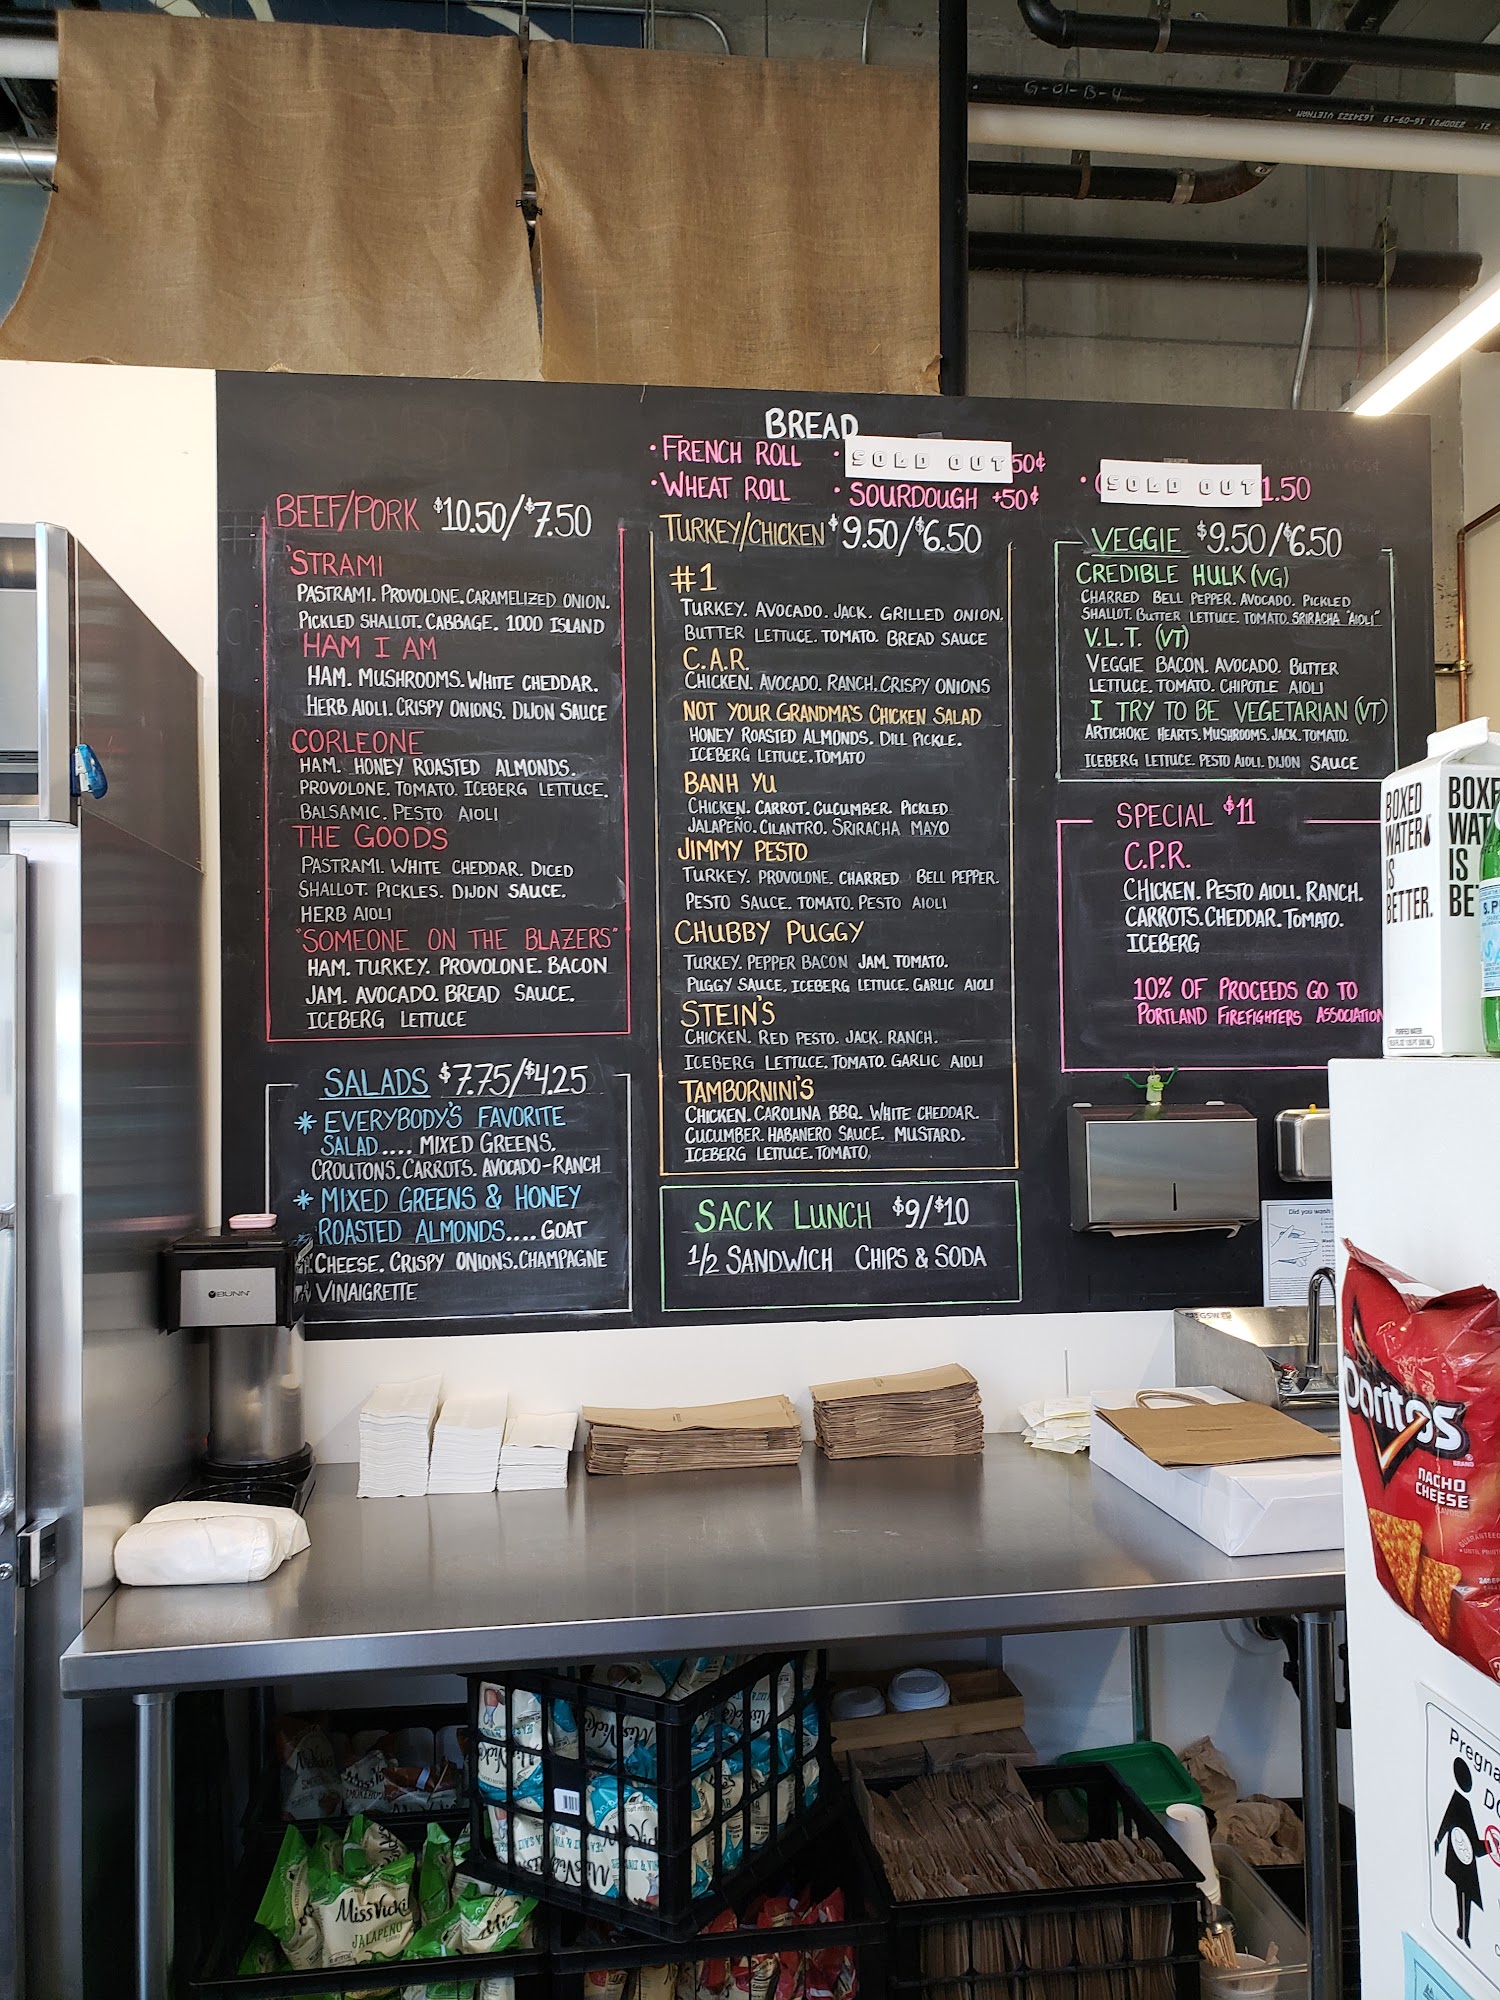 G-01-B-4
BREAD
• FRENCH ROLL • SOLD OUT 50¢
• WHEAT ROLL • SOURDOUGH +50¢
• SOLD OUT 1.50
BEEF/PORK $10.50/$7.50
'STRAMI
PASTRAMI. PROVOLONE. CARAMELIZED ONION.
PICKLED SHALLOT. CABBAGE. 1000 ISLAND
HAM I AM
HAM. MUSHROOMS. WHITE CHEDDAR.
HERB AIOLI. CRISPY ONIONS. DIJON SAUCE
CORLEONE
HAM. HONEY ROASTED ALMONDS.
PROVOLONE. TOMATO. ICEBERG LETTUCE.
BALSAMIC. PESTO AIOLI
THE GOODS
PASTRAMI. WHITE CHEDDAR. DICED
SHALLOT. PICKLES. DIJON SAUCE.
HERB AIOLI
"SOMEONE ON THE BLAZERS"
HAM. TURKEY. PROVOLONE. BACON
JAM. AVOCADO. BREAD SAUCE.
ICEBERG LETTUCE
SALADS $7.75/$4.25
* EVERYBODY'S FAVORITE
SALAD.... MIXED GREENS.
CROUTONS. CARROTS. AVOCADO-RANCH
* MIXED GREENS & HONEY
ROASTED ALMONDS.... GOAT
CHEESE. CRISPY ONIONS. CHAMPAGNE
VINAIGRETTE
TURKEY/CHICKEN $9.50/$6.50
#1
TURKEY. AVOCADO. JACK. GRILLED ONION.
BUTTER LETTUCE. TOMATO. BREAD SAUCE
C.A.R.
CHICKEN. AVOCADO. RANCH. CRISPY ONIONS
NOT YOUR GRANDMA'S CHICKEN SALAD
HONEY ROASTED ALMONDS. DILL PICKLE.
ICEBERG LETTUCE. TOMATO
BANH YU
CHICKEN. CARROT. CUCUMBER. PICKLED
JALAPEÑO. CILANTRO. SRIRACHA MAYO
JIMMY PESTO
TURKEY. PROVOLONE. CHARRED BELL PEPPER.
PESTO SAUCE. TOMATO. PESTO AIOLI
CHUBBY PUGGY
TURKEY. PEPPER BACON JAM. TOMATO.
PUGGY SAUCE. ICEBERG LETTUCE. GARLIC AIOLI
STEIN'S
CHICKEN. RED PESTO. JACK. RANCH.
ICEBERG LETTUCE. TOMATO. GARLIC AIOLI
TAMBORNINI'S
CHICKEN. CAROLINA BBQ. WHITE CHEDDAR.
CUCUMBER. HABANERO SAUCE. MUSTARD.
ICEBERG LETTUCE. TOMATO
SACK LUNCH $9/$10
1/2 SANDWICH CHIPS & SODA
VEGGIE $9.50/$6.50
CREDIBLE HULK (VG)
CHARRED BELL PEPPER. AVOCADO. PICKLED
SHALLOT. BUTTER LETTUCE. TOMATO. SRIRACHA "AIOLI"
V.L.T. (VT)
VEGGIE BACON. AVOCADO. BUTTER
LETTUCE. TOMATO. CHIPOTLE AIOLI
I TRY TO BE VEGETARIAN (VT)
ARTICHOKE HEARTS. MUSHROOMS. JACK. TOMATO.
ICEBERG LETTUCE. PESTO AIOLI. DIJON SAUCE
SPECIAL $11
C.P.R.
CHICKEN. PESTO AIOLI. RANCH.
CARROTS. CHEDDAR. TOMATO.
ICEBERG
10% OF PROCEEDS GO TO
PORTLAND FIREFIGHTERS ASSOCIATION
BOXED
WATER
IS
BETTER.
BUNN
Did you wash
GSW
Doritos
NACHO
CHEESE
Miss Vickie
JALAPEÑO
Miss Vickie